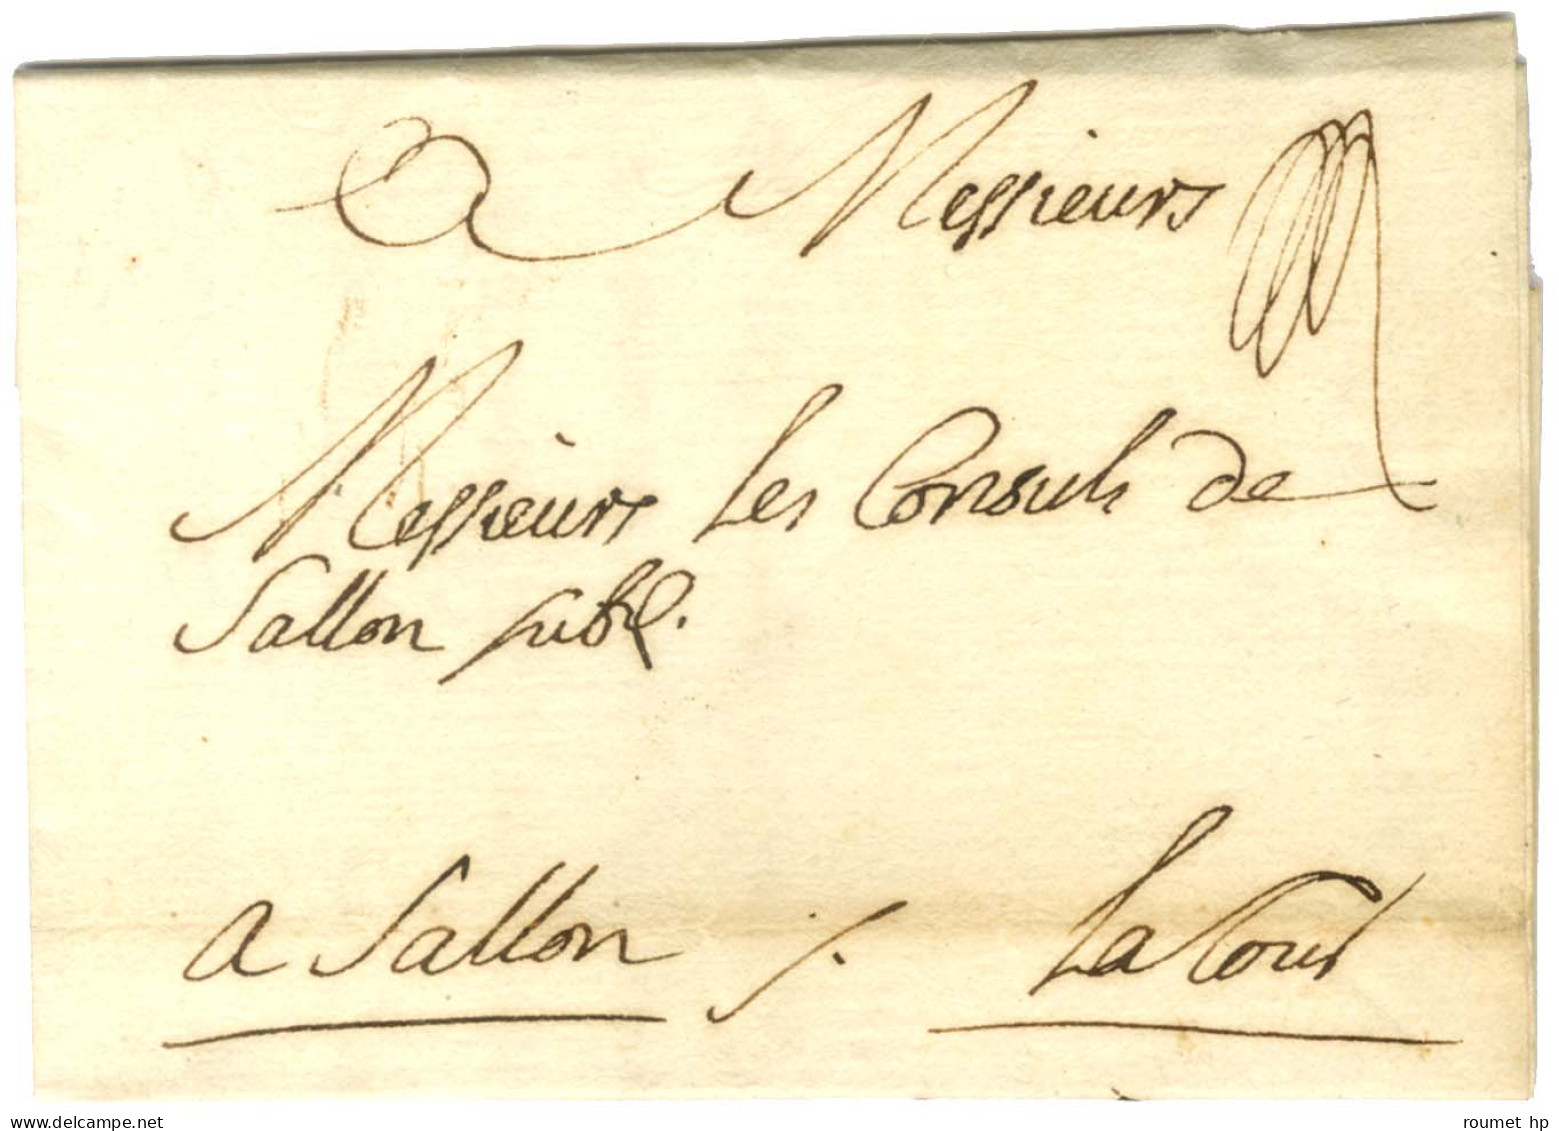 A Messieurs
Messieurs les Consuls de
Sallon
a Sallon ./.
La Cour
www.delcampe.net
roumet hp